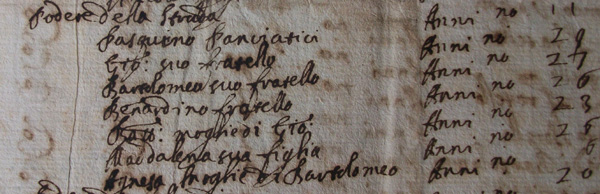 Podere della Strada Anni no 11
Pasquino Panciatici Anni no 29
Gio: suo fratello Anni no 27
Bartolomeo suo fratello Anni no 26
Benardino fratello Anni no 23
moglie di Gio: Anni no 25
Maddalena sua figlia Anni no 6
Agnesa Moglie di Bartolomeo Anni no 20